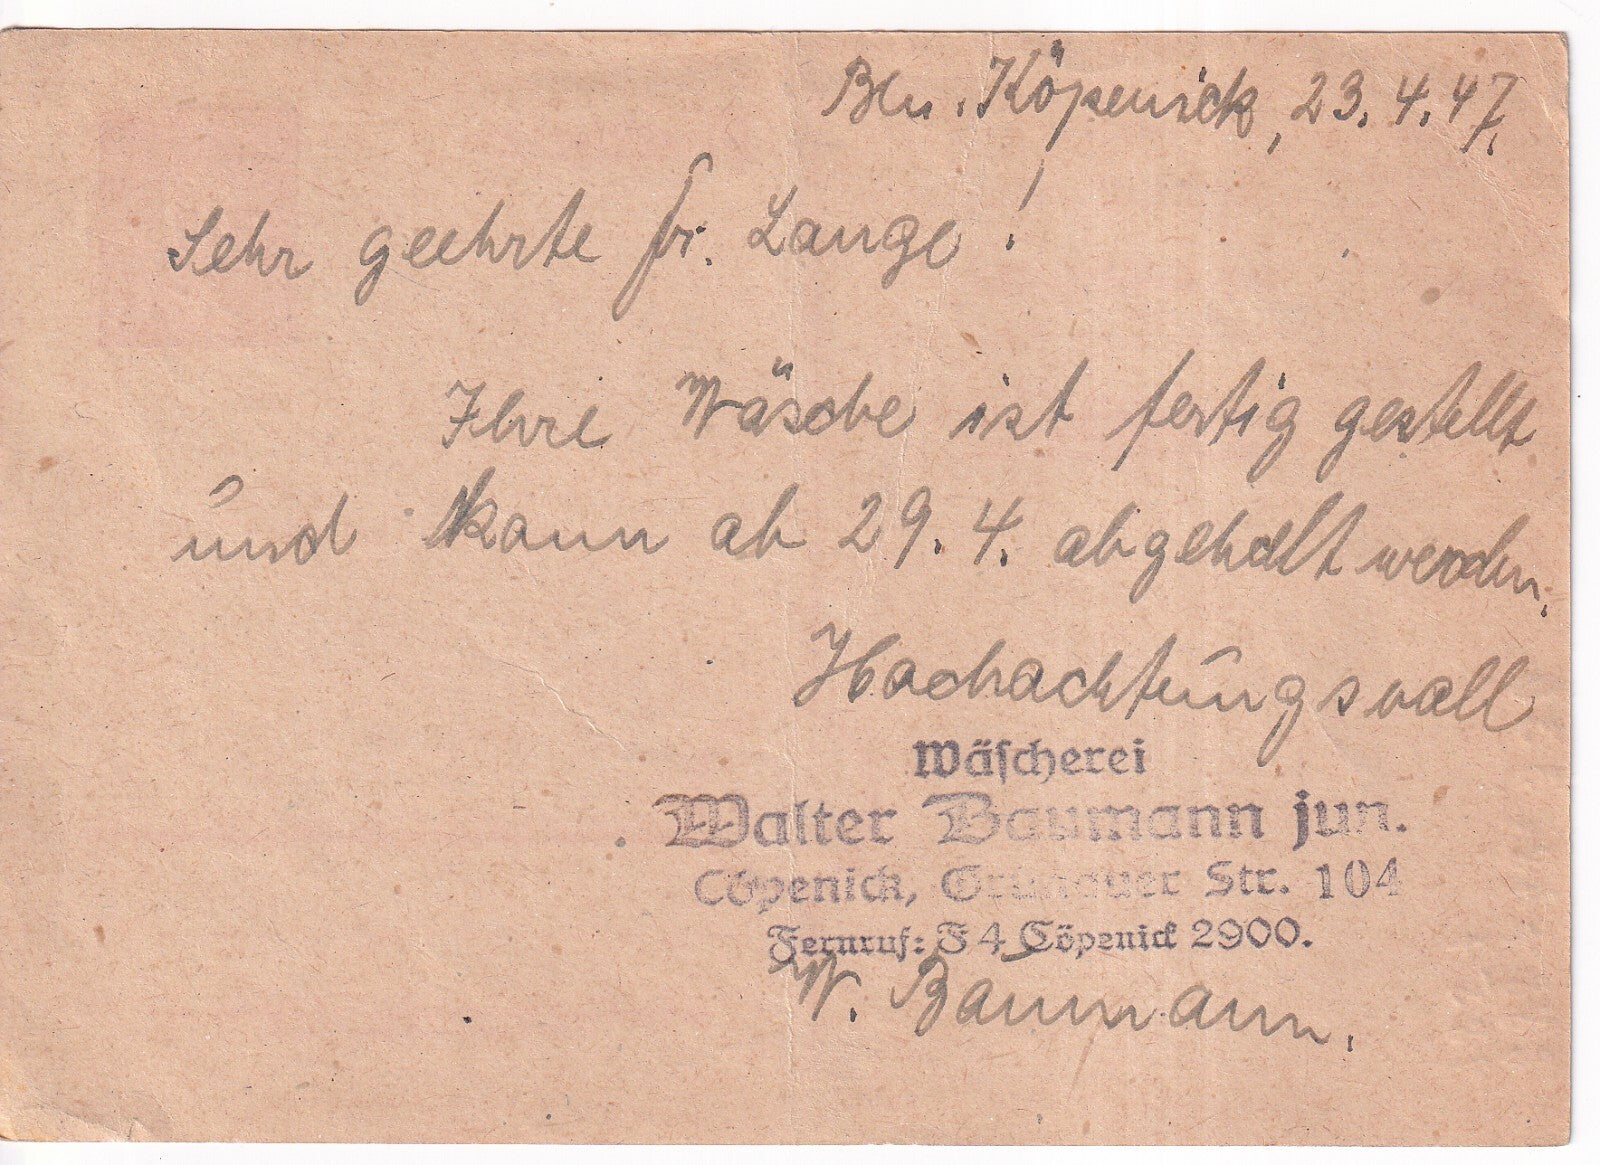 Bln. Köpenick, 23.4.47.
Sehr geehrte Fr. Lange!
Ihre Wäsche ist fertig gestellt
und kann ab 29.4. abgehalt werden.
Hochachtungsvoll
Wäscherei
Walter Baumann jun.
Cöpenick, Grünauer Str. 104
Fernruf: F 4 Cöpenick 2900.
W. Baumann.